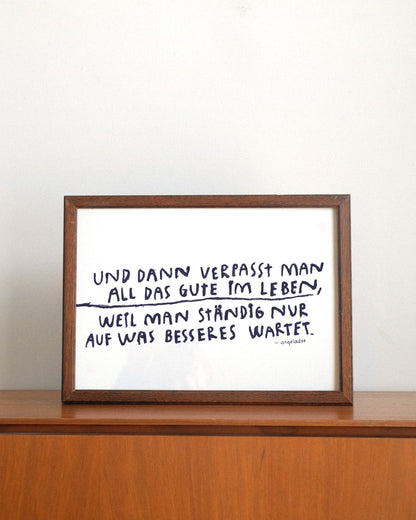 UND DANN VERPASST MAN
ALL DAS GUTE IM LEBEN,
WEIL MAN STÄNDIG NUR
AUF WAS BESSERES WARTET.
- angeladoe